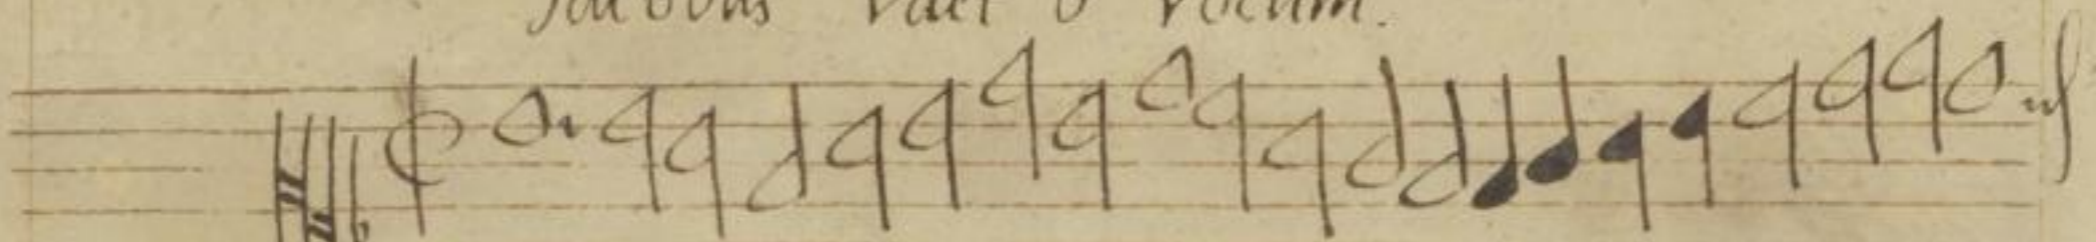 Jacobus Vaet 6 vocum.